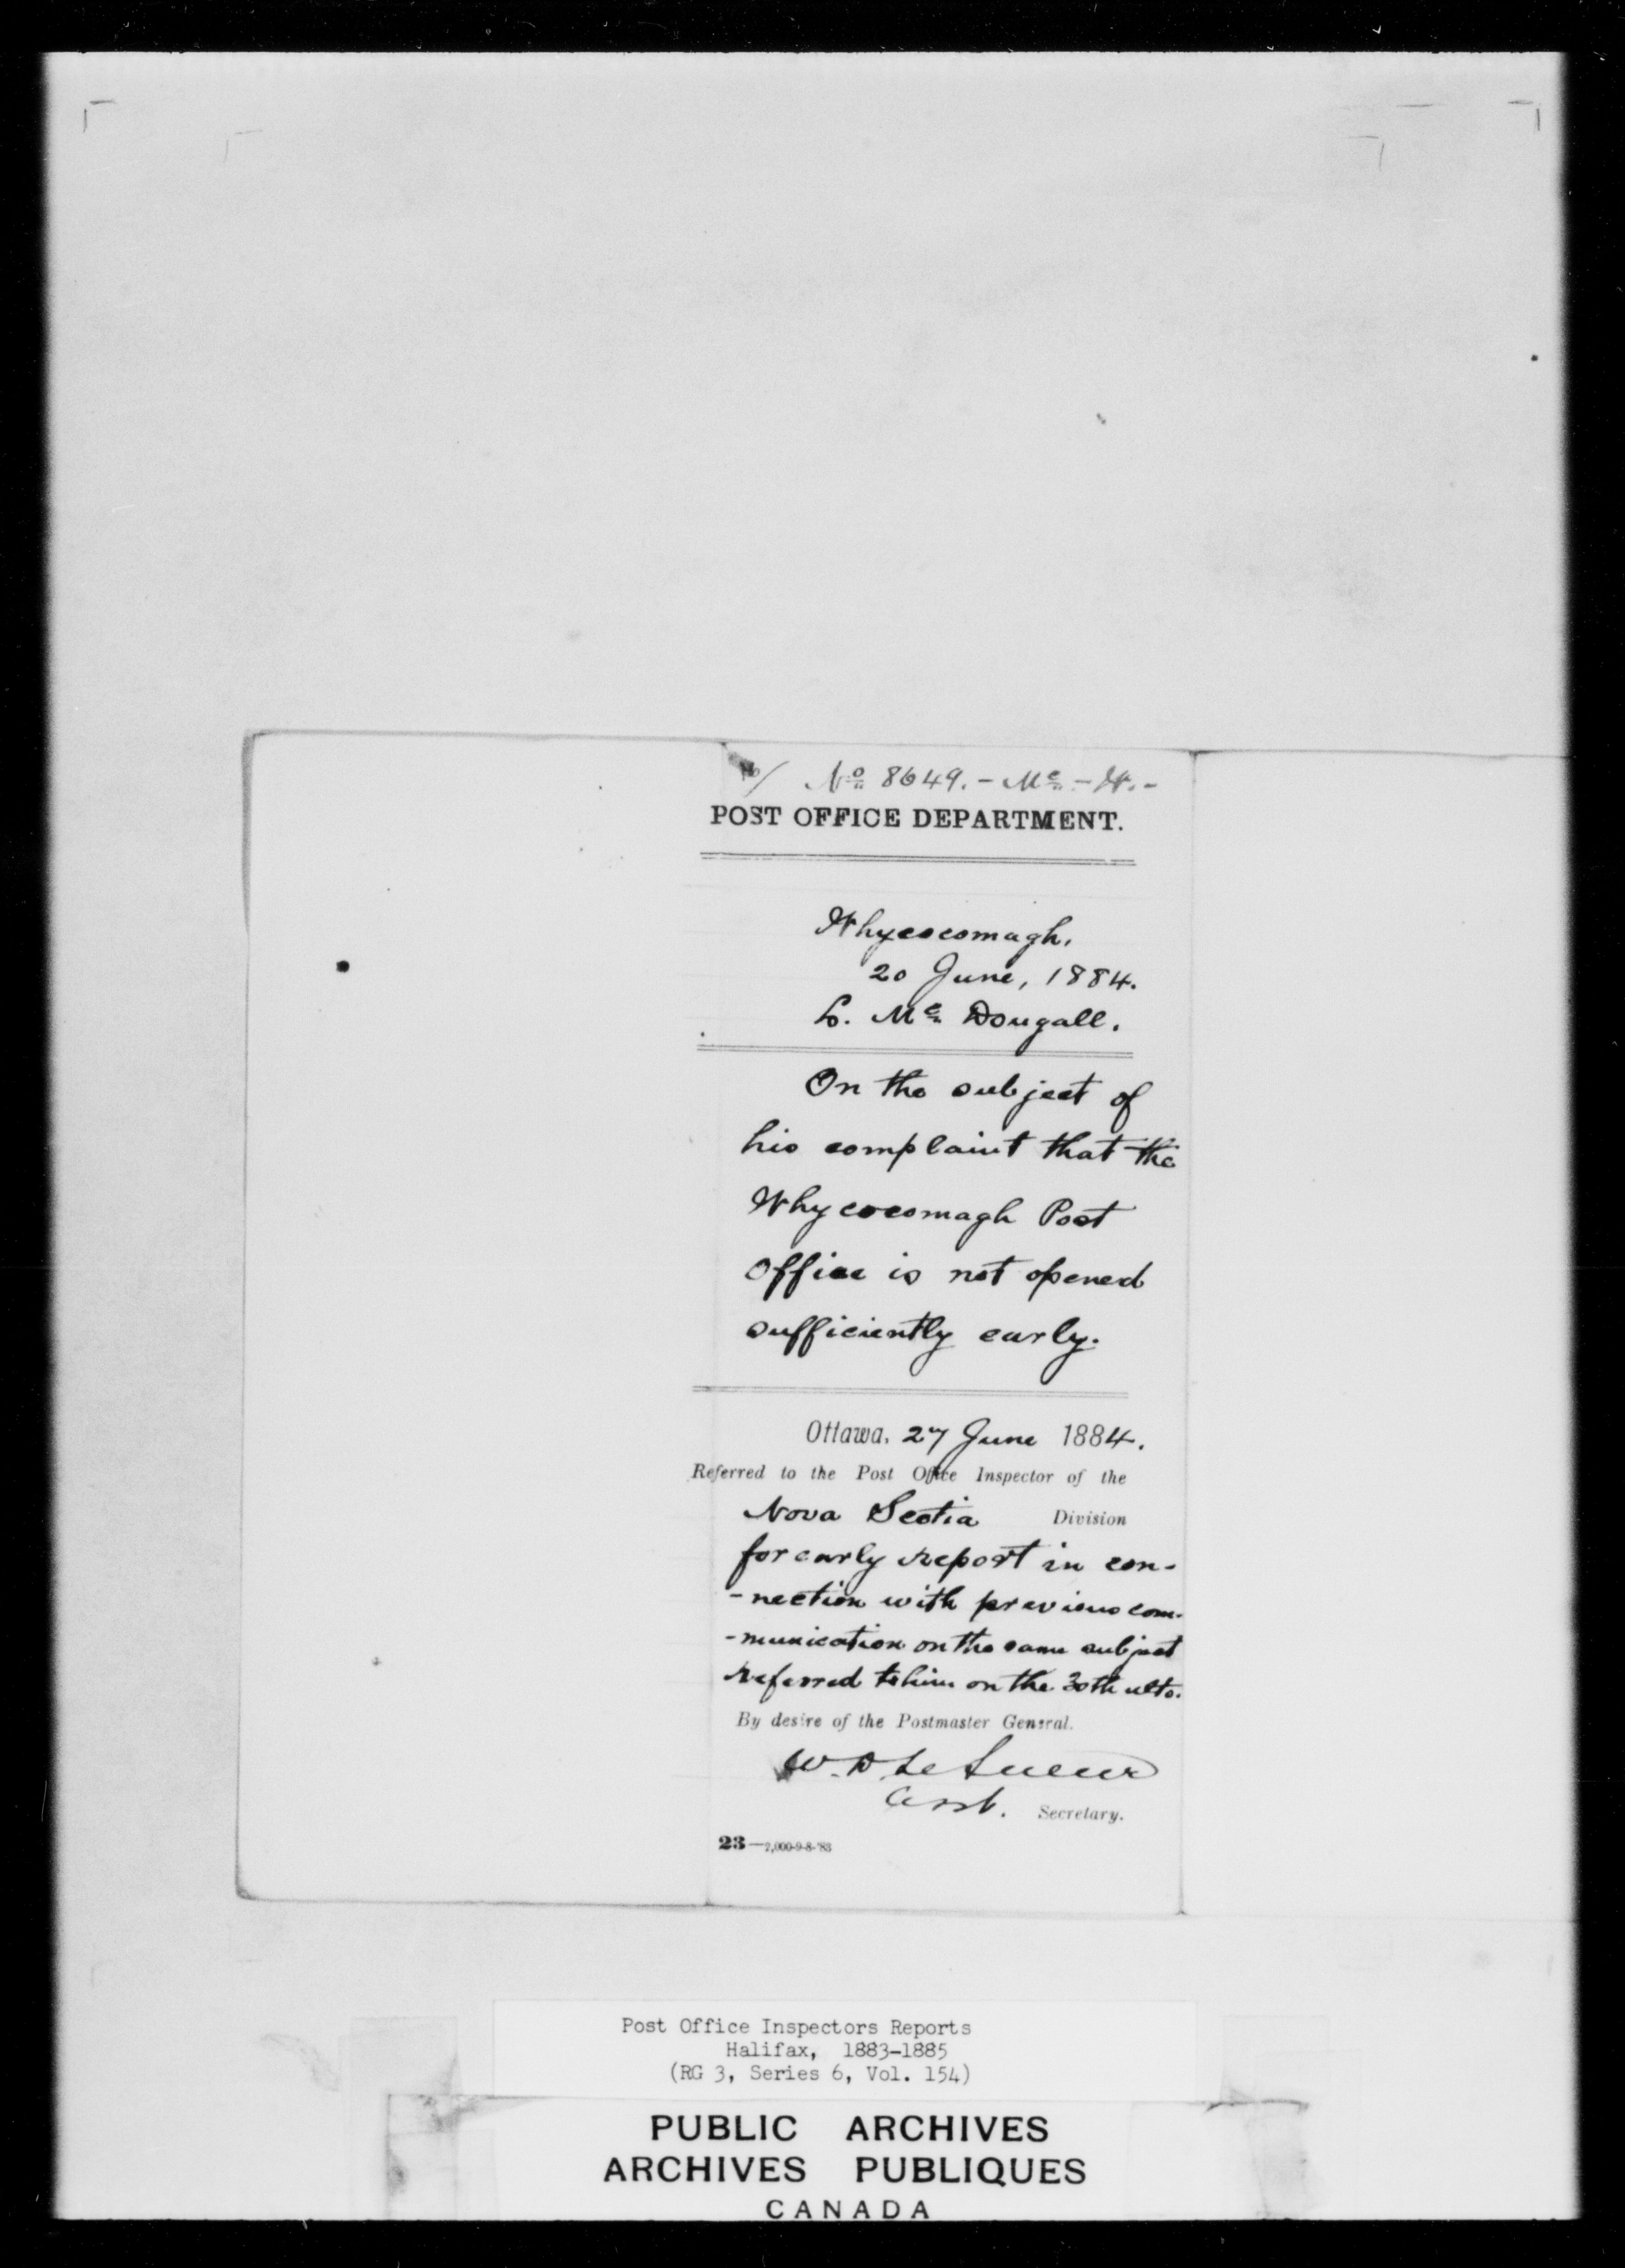 No 8649. - Mc - W. -
POST OFFICE DEPARTMENT.
Whycocomagh,
20 June, 1884.
L. Mc Dougall.
On the subject of
his complaint that the
Whycocomagh Post
Office is not opened
sufficiently early.
Ottawa, 27 June 1884.
Referred to the Post Office Inspector of the
Nova Scotia Division
for early report in con-
-nection with previous com-
-munication on the same subject
referred to him on the 30th ulto.
By desire of the Postmaster General.
W. D. Le Sueur
Asst. Secretary.
23—2,000-9-8-'83
Post Office Inspectors Reports
Halifax, 1883-1885
(RG 3, Series 6, Vol. 154)
PUBLIC ARCHIVES
ARCHIVES PUBLIQUES
CANADA